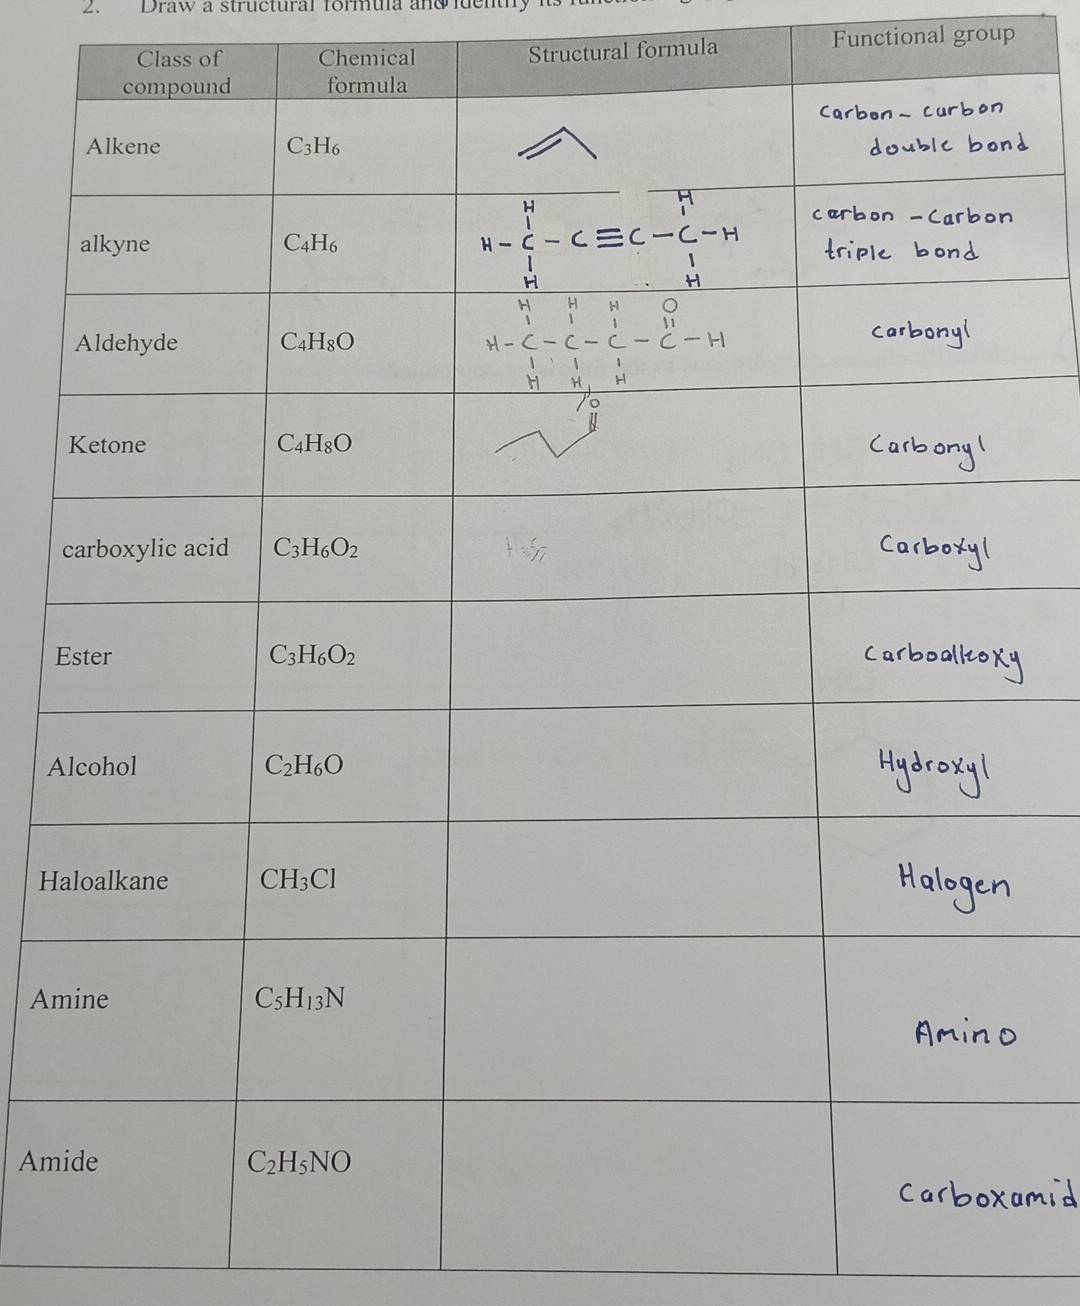 2. Draw a structural formula and identify its
Class of
compound
Chemical
formula
Structural formula
Functional group
Alkene
C₃H₆
carbon - carbon
double bond
alkyne
C₄H₆
H H
H - C - C ≡ C - C - H
H H
carbon - carbon
triple bond
Aldehyde
C₄H₈O
H H H O
H - C - C - C - C - H
H H H
carbonyl
Ketone
C₄H₈O
O
Carbonyl
carboxylic acid
C₃H₆O₂
Carboxyl
Ester
C₃H₆O₂
carboalkoxy
Alcohol
C₂H₆O
Hydroxyl
Haloalkane
CH₃Cl
Halogen
Amine
C₅H₁₃N
Amino
Amide
C₂H₅NO
Carboxamid